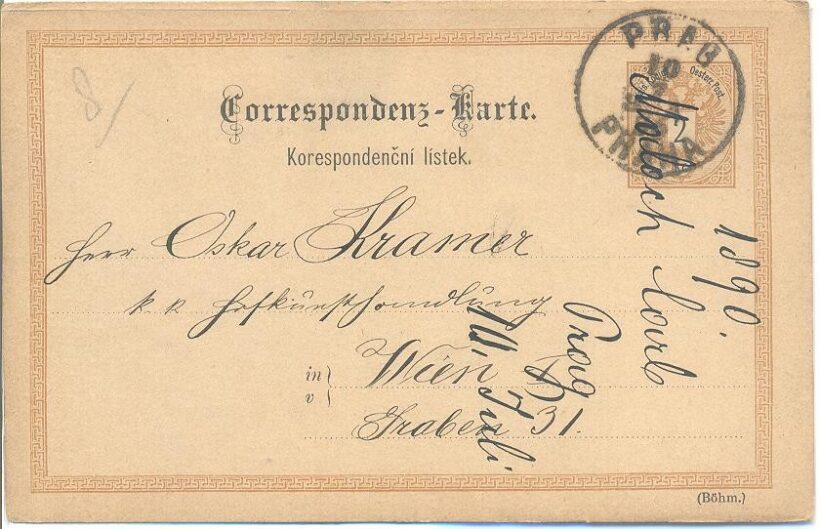 8/
PRAG
10
PRAHA
Oesterr. Post.
2
Correspondenz-Karte.
Korespondenční lístek.
Herr Oskar Kramer
k. k. Hofkunsthandlung
in
v
Wien
Graben 31.
Carl
Prag
10. Juli
1890.
(Böhm.)